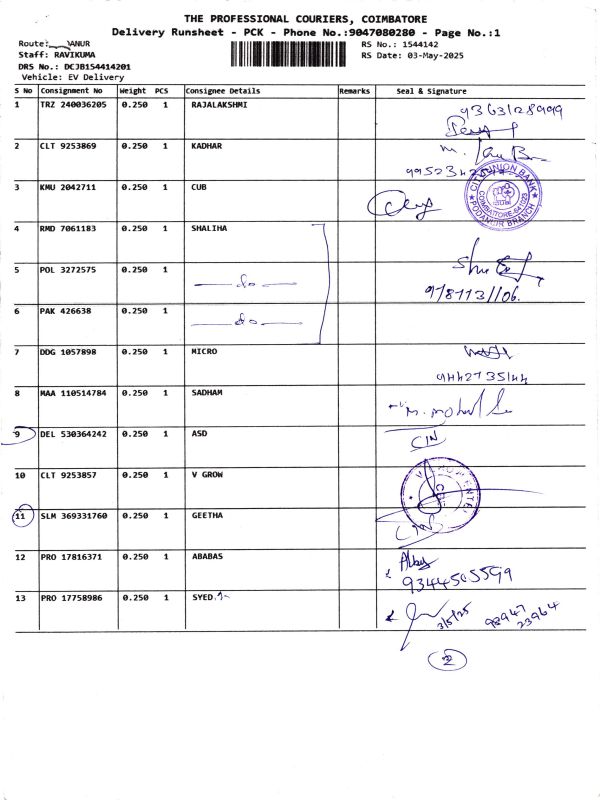 THE PROFESSIONAL COURIERS, COIMBATORE
Delivery Runsheet - PCK - Phone No.:9047080280 - Page No.:1
Route: ANUR
RS No.: 1544142
Staff: RAVIKUMA
RS Date: 03-May-2025
DRS No.: DCJB154414201
Vehicle: EV Delivery
S No Consignment No Weight PCS Consignee Details Remarks Seal & Signature
1 TRZ 240036205 0.250 1 RAJALAKSHMI
9363128999
2 CLT 9253869 0.250 1 KADHAR
3 KMU 2042711 0.250 1 CUB
CITY UNION BANK
COIMBATORE-641023
PODANUR BRANCH
4 RMD 7061183 0.250 1 SHALIHA
5 POL 3272575 0.250 1
do
9787731106.
6 PAK 426638 0.250 1
do
7 DDG 1057898 0.250 1 MICRO
9442735144
8 MAA 110514784 0.250 1 SADHAM
9 DEL 530364242 0.250 1 ASD
10 CLT 9253857 0.250 1 V GROW
11 SLM 369331760 0.250 1 GEETHA
12 PRO 17816371 0.250 1 ABABAS
9344505599
13 PRO 17758986 0.250 1 SYED
3/5/25
98947
23964
2